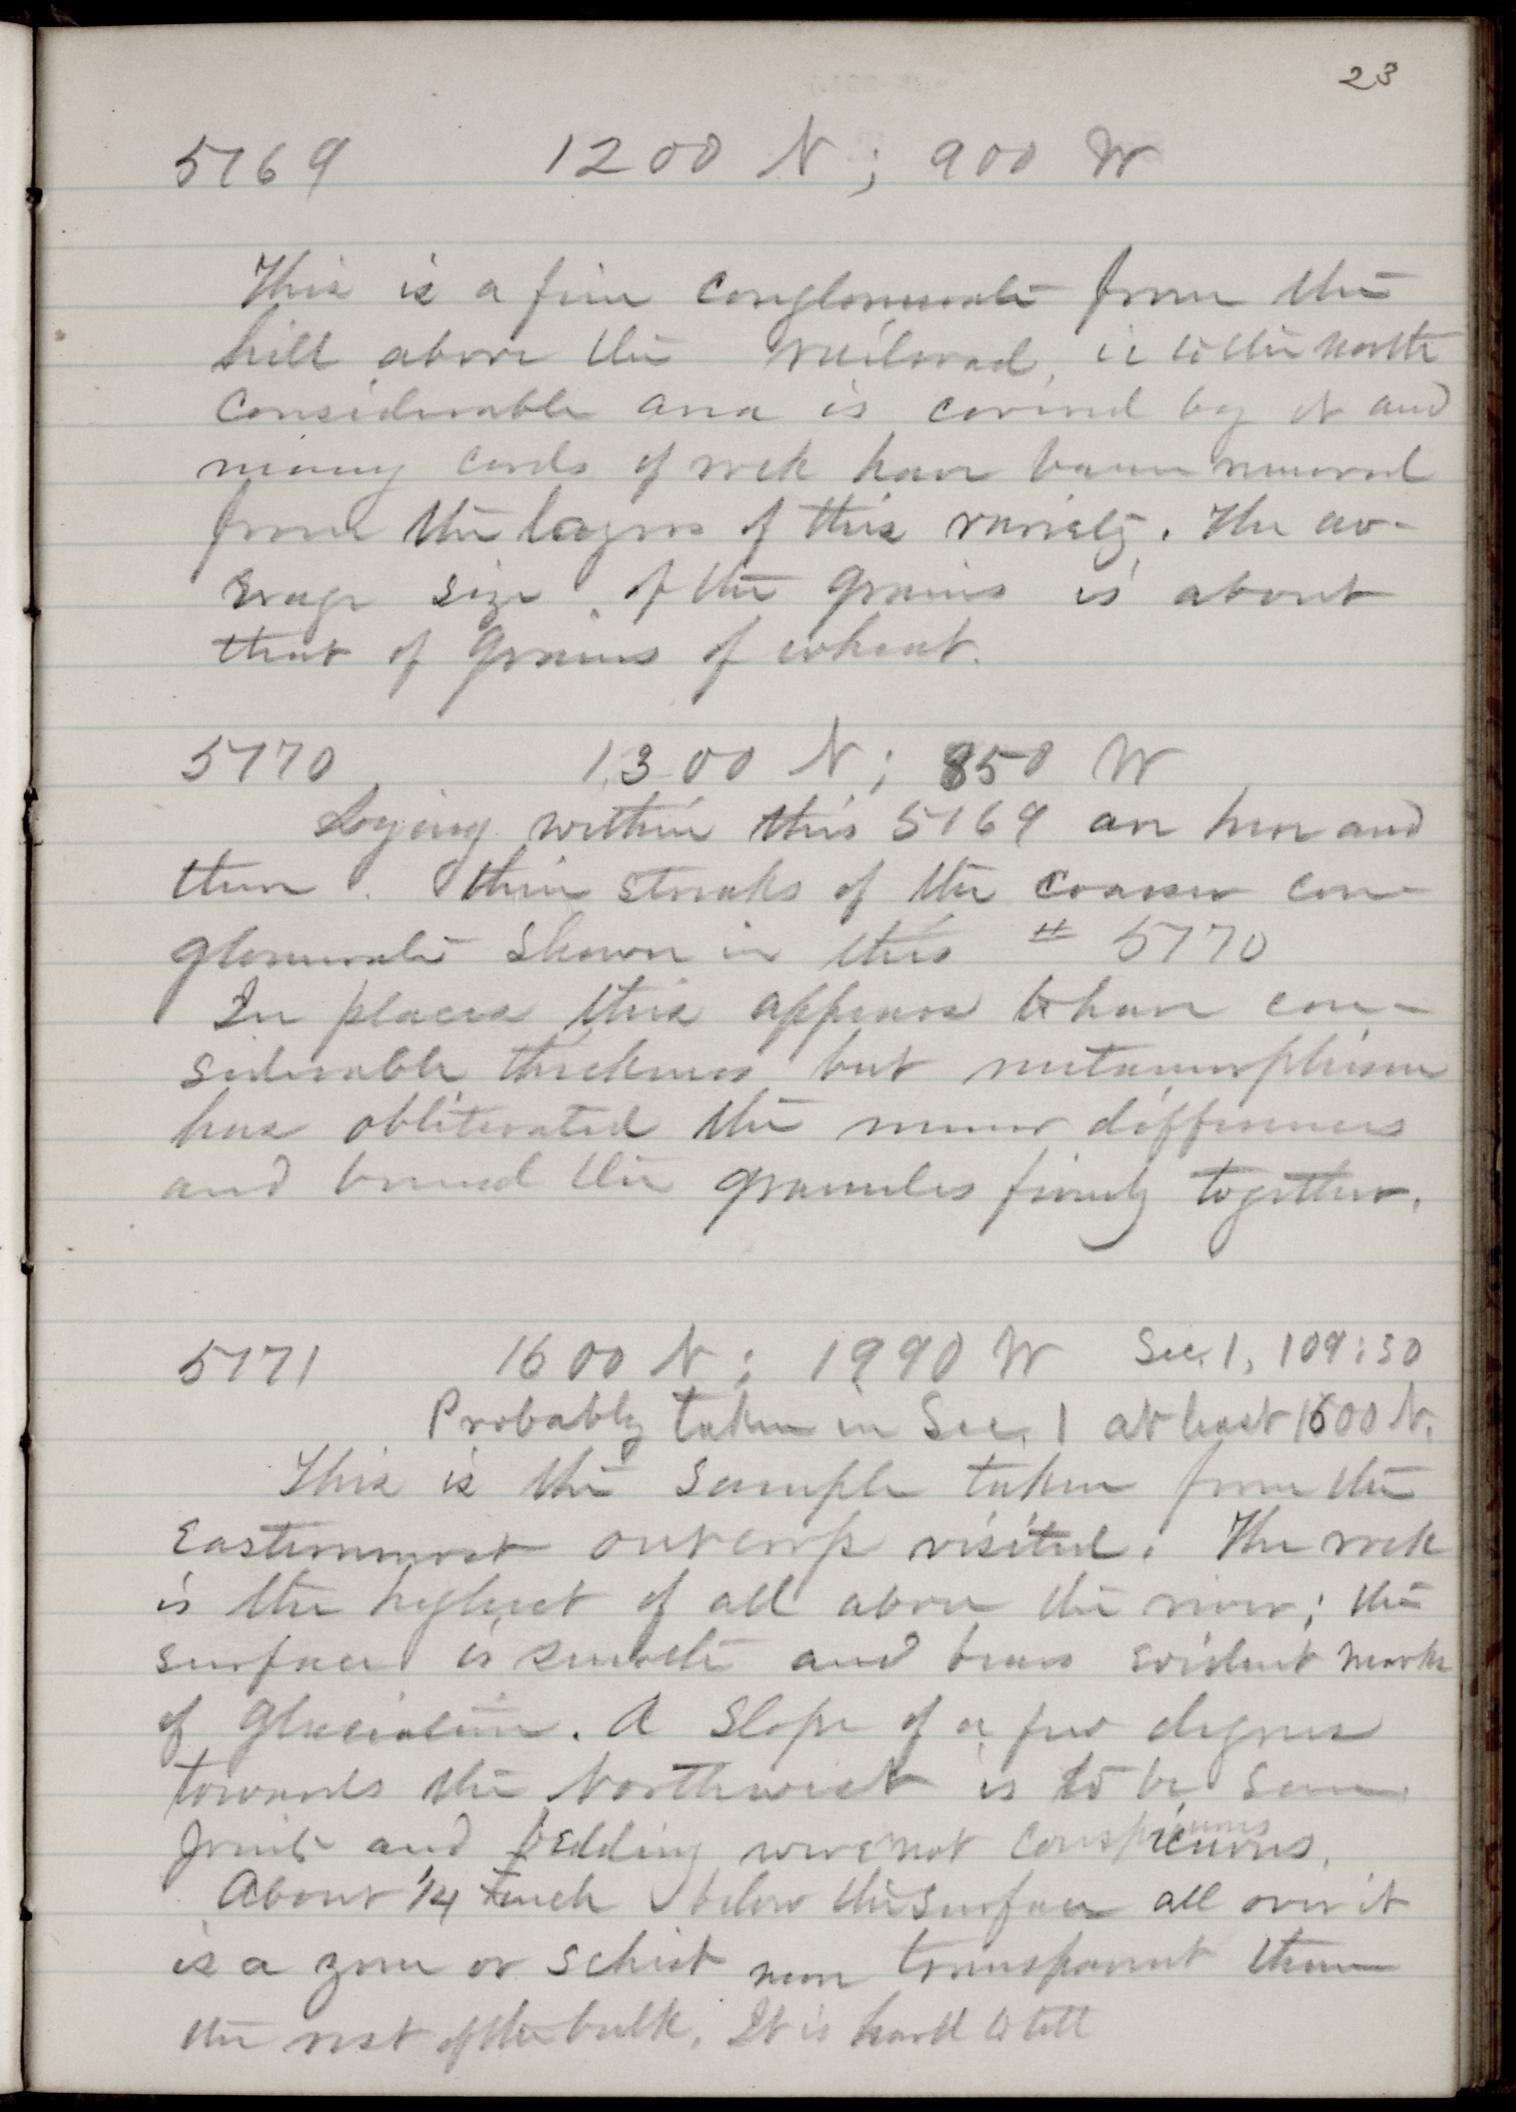 23
5169 1200 N ; 900 W
This is a fine conglomerate from the
hill above the railroad, ie to the north
Considerable area is covered by it and
many cords of rock have been removed
from the layers of this variety. The av-
erage size of the grains is about
that of grains of wheat.
5170 1300 N ; 850 W
Lying within this 5169 are here and
there thin streaks of the coarser con-
glomerate shown in this # 5770
In places this appears to have con-
siderable thickness but metamorphism
has obliterated the minor differences
and bound the granules firmly together.
5171 1600 N ; 1990 W Sec. 1, 109:30
Probably taken in Sec. 1 at least 1600 N.
This is the sample taken from the
Easternmost outcrop visited. The rock
is the highest of all above the river; the
surface is smooth and bears evident marks
of glaciation. A slope of a few degrees
towards the Northwest is to be seen
joints and bedding were not conspicuous.
About 1/4 inch below the surface all over it
is a zone or schist more transparent than
the rest of the bulk. It is hard to tell